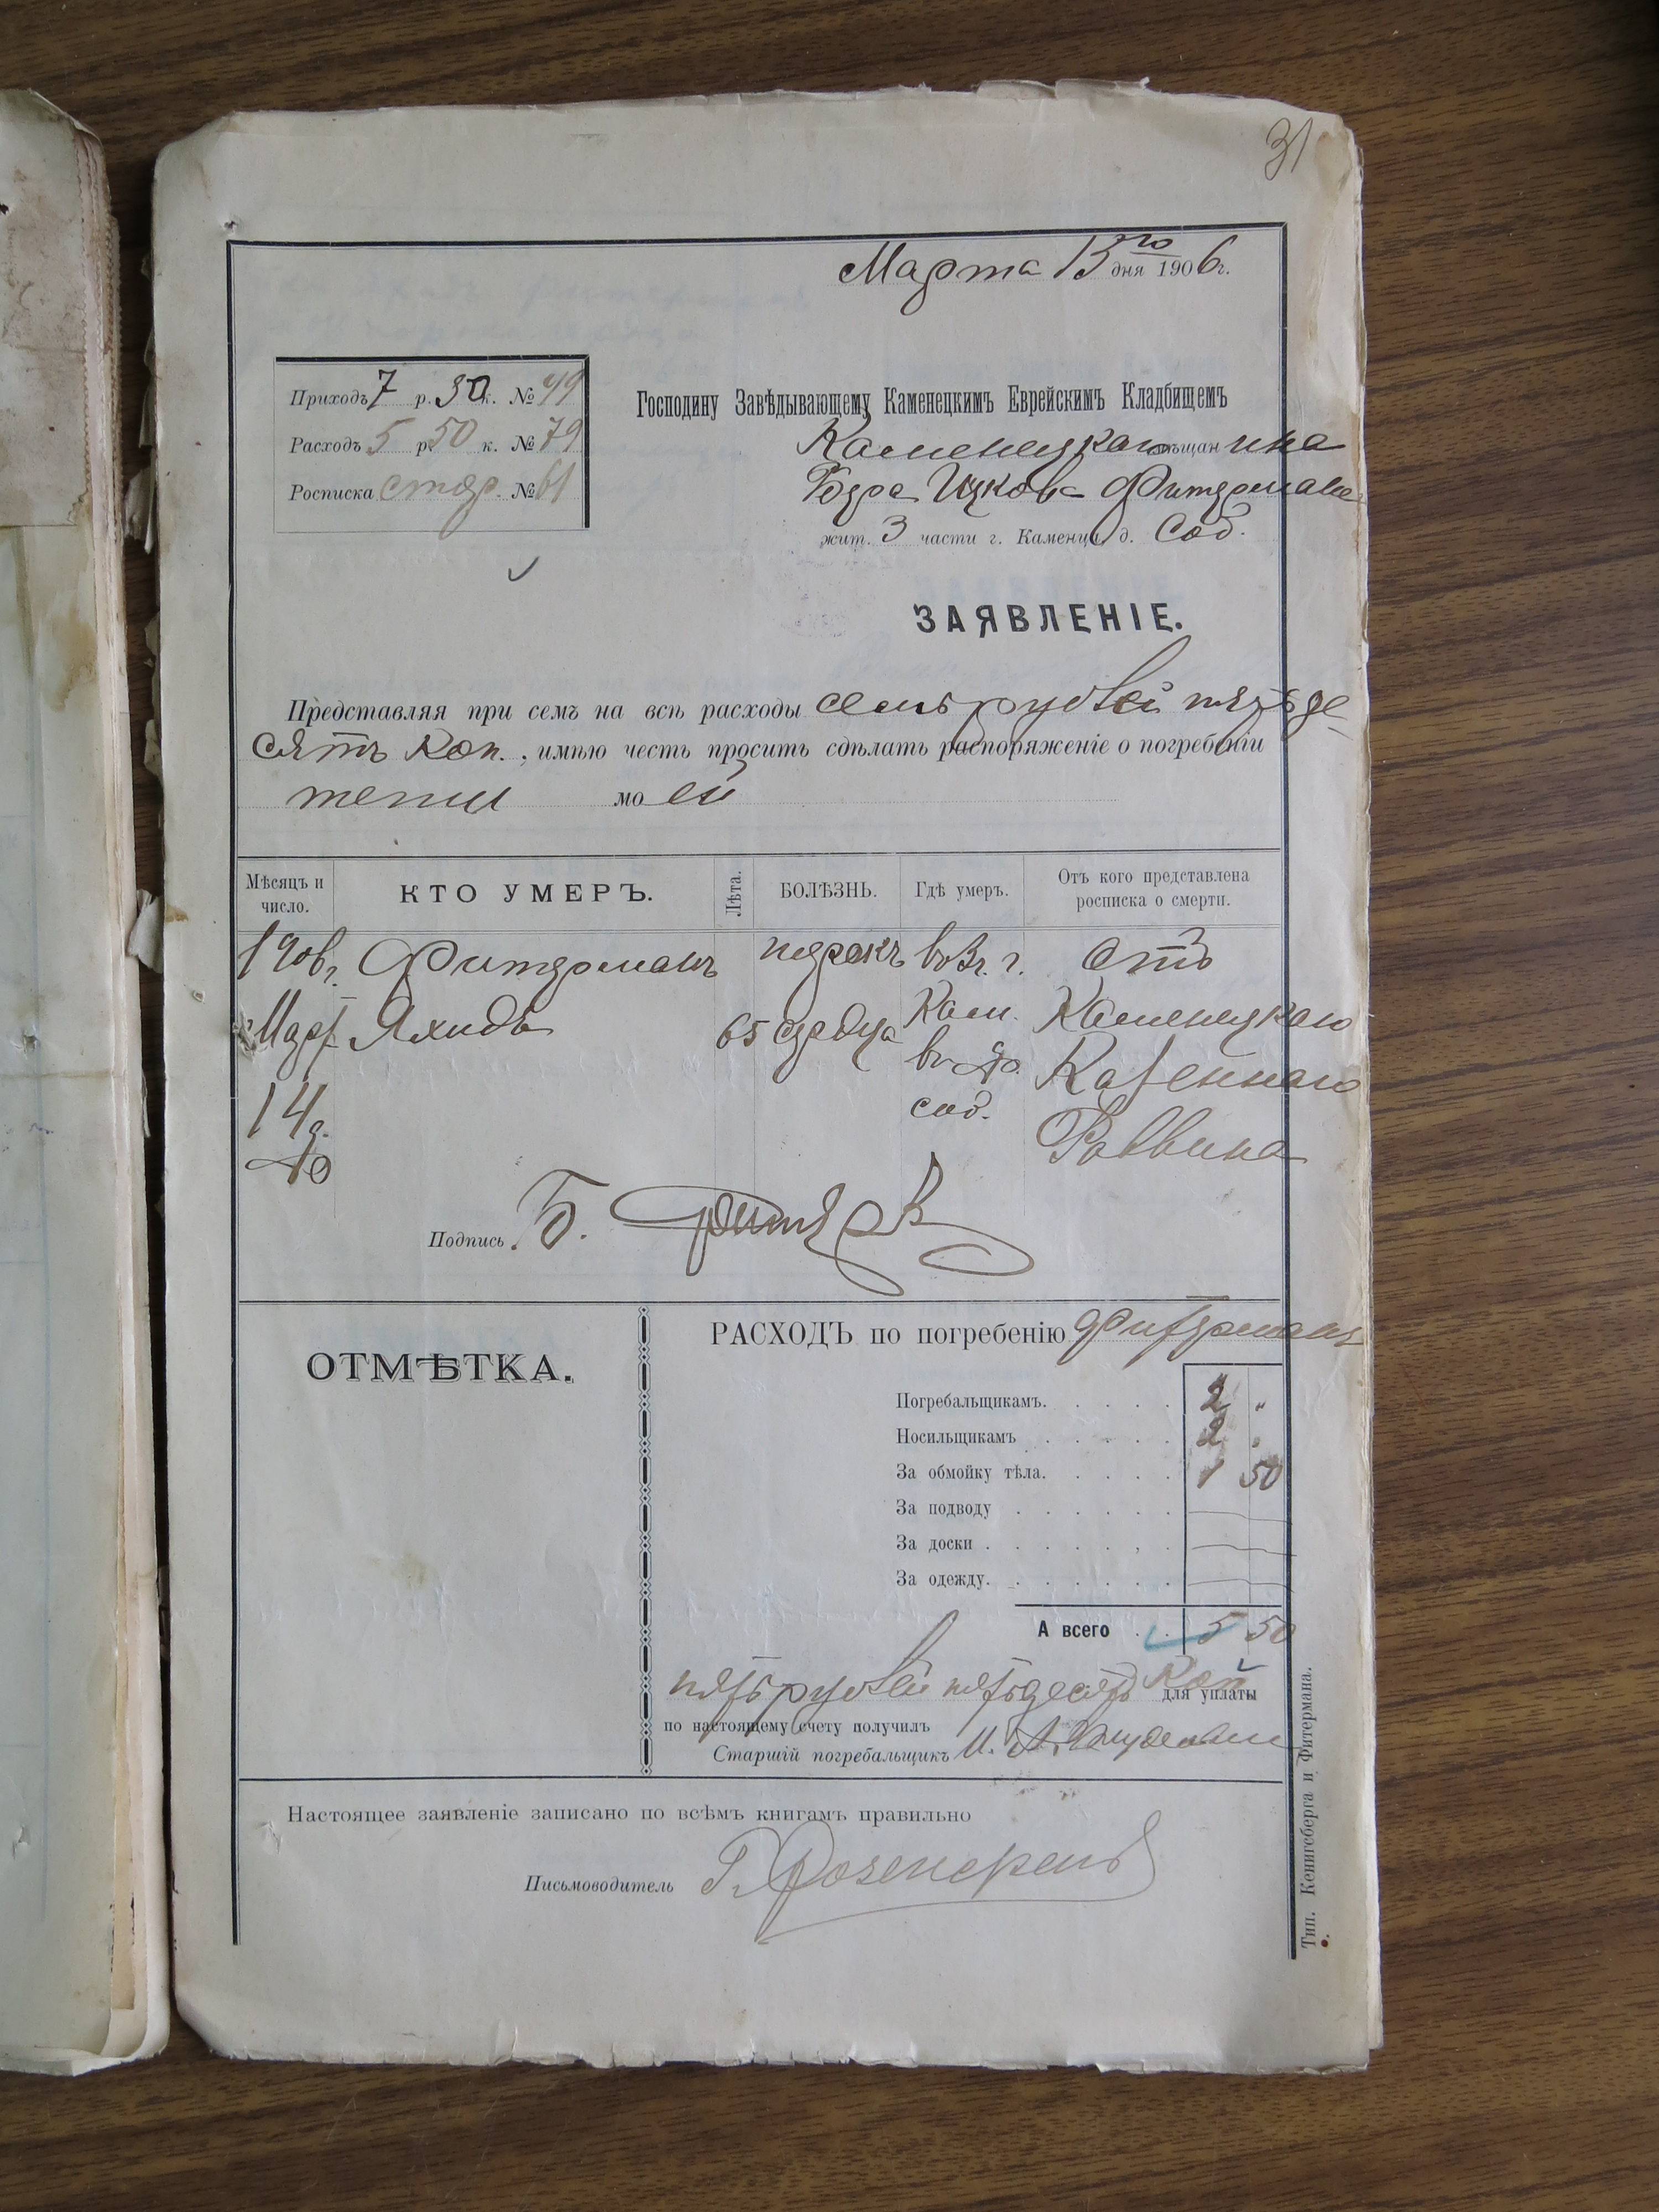 31
Марта 13го дня 1906 г.
Приходъ 7 р. 30 к. № 49
Расходъ 5 р. 50 к. № 79
Росписка № 61
Господину Завѣдывающему Каменецкимъ Еврейскимъ Кладбищемъ
Каменецкаго мѣщанина
Ицкова Фитермана
жит. 3 части г. Каменца д. соб.
ЗАЯВЛЕНІЕ.
Представляя при семъ на всѣ расходы семь рублей пятьде
сятъ коп., имѣю честь просить сдѣлать распоряженіе о погребеніи
моей
Мѣсяцъ и число.
КТО УМЕРЪ.
Лѣта.
БОЛѢЗНЬ.
Гдѣ умеръ.
Отъ кого представлена росписка о смерти.
1906 г. Фитерманъ порокъ въ г. Отъ
Март 65 сердца Кам. Каменецкаго
14 д. соб. Казеннаго
Раввина
Подпись Б.
ОТМѢТКА.
РАСХОДЪ по погребенію Фитерманъ
Погребальщикамъ. . . . . 2 „
Носильщикамъ . . . . . 2 „
За обмойку тѣла. . . . . 1 50
За подводу . . . . . .
За доски . . . . . . .
За одежду. . . . . . .
А всего . . 5 50
пять рублей пятьдесятъ коп для уплаты
по настоящему счету получилъ
Старшій погребальщикъ
Настоящее заявленіе записано по всѣмъ книгамъ правильно
Письмоводитель
Тип. Кенигсберга и Фитермана.